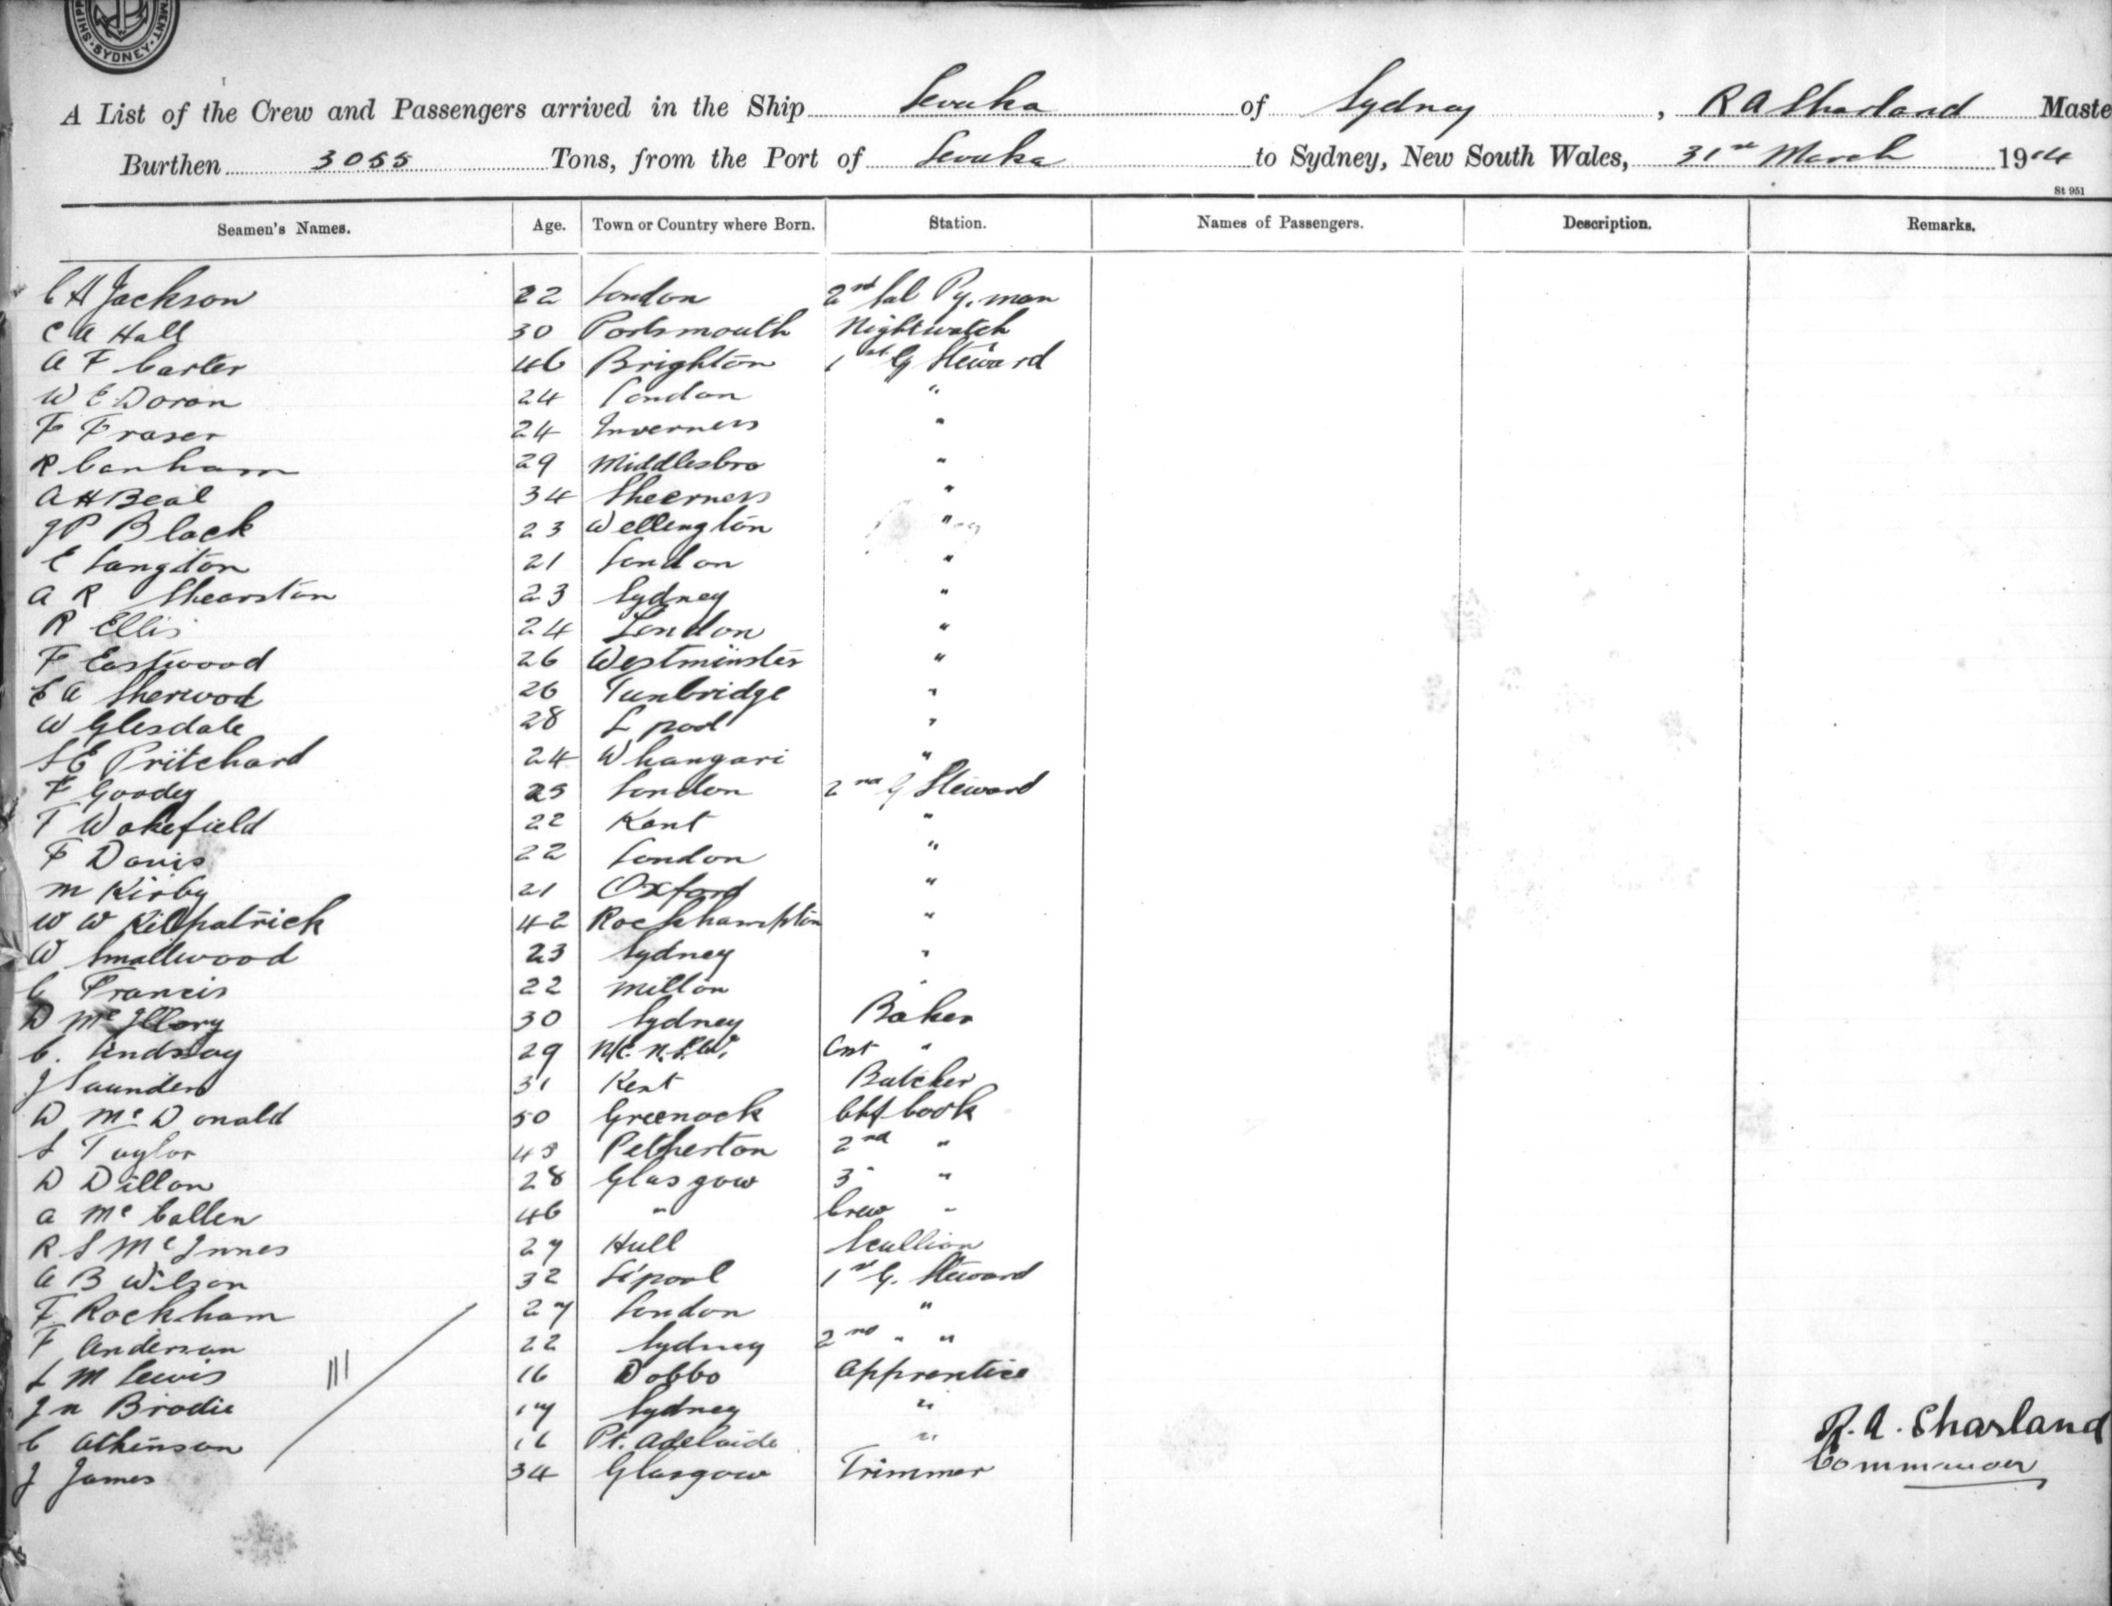 SHIPP MENT
· SYDNEY ·
A List of the Crew and Passengers arrived in the Ship Levuka of Sydney, R A Sharland Maste
Burthen 3055 Tons, from the Port of Levuka to Sydney, New South Wales, 31st March 1914
St 951
Seamen's Names. Age. Town or Country where Born. Station. Names of Passengers. Description. Remarks.
C H Jackson 22 London 2nd Sal Py. man
C A Hall 30 Portsmouth Nightwatch
A F Carter 46 Brighton 1st G Steward
W E Doran 24 London "
F Fraser 24 Inverness "
R Canham 29 Middlesbro "
A H Beal 34 Sheerness "
J P Black 23 Wellington "
E Langton 21 London "
A R Shearston 23 Sydney "
R Ellis 24 London "
F Eastwood 26 Westminster "
C A Sherwood 26 Tunbridge "
W Glesdale 28 L pool "
S E Pritchard 24 Whangari "
F Goodey 23 London 2nd G Steward
T Wakefield 22 Kent "
F Davis 22 London "
M Kirby 21 Oxford "
W W Kilpatrick 42 Rockhampton "
W Smallwood 23 Sydney "
C Francis 22 Milton "
D McIllory 30 Sydney Baker
C. Lindsay 29 N.S.W. "
J Saunders 31 Kent Butcher
D McDonald 50 Greenock Chf Cook
S Taylor 43 Petherton 2nd "
D Dillon 28 Glasgow 3 "
A McCallen 46 " Crew "
R S McInnes 27 Hull Scullion
A B Wilson 32 L'pool 1st G. Steward
F Rockham 27 London "
F Anderson 22 Sydney 2nd " "
L M Lewis 16 Dobbo Apprentice
J N Brodie 17 Sydney "
C Atkinson 16 Pt. Adelaide "
J James 34 Glasgow Trimmer
R. A. Sharland
Commander